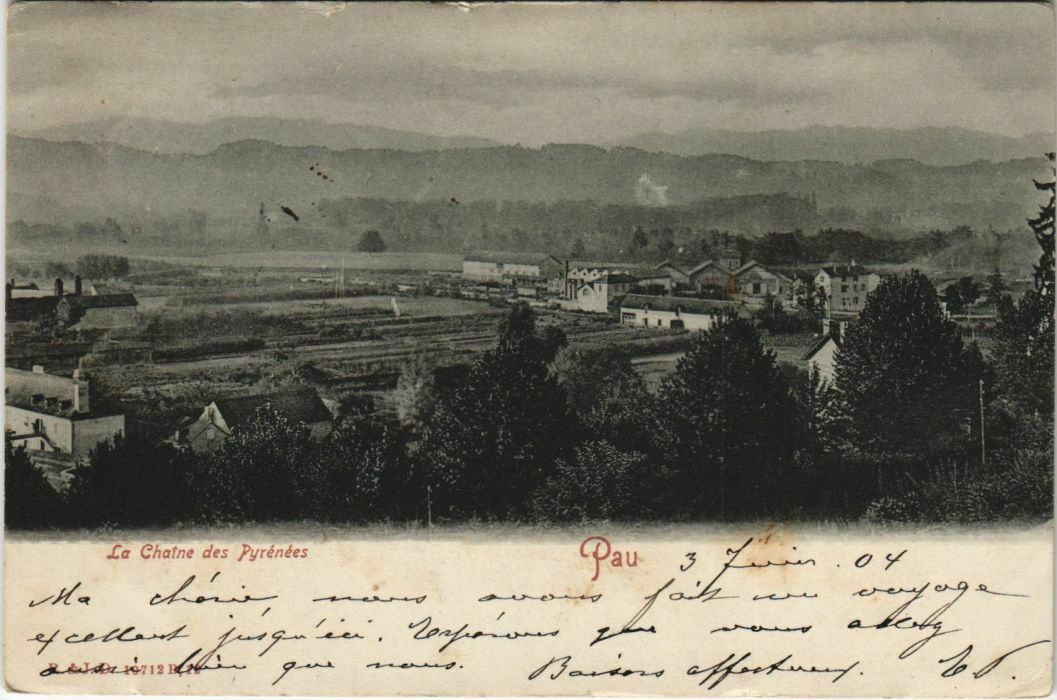 La Chaîne des Pyrénées
Pau 3 février 04
Ma chérie nous avons fait un voyage
excellent jusqu'ici. Espérons que vous allez
aussi bien que nous. Baisers affectueux.